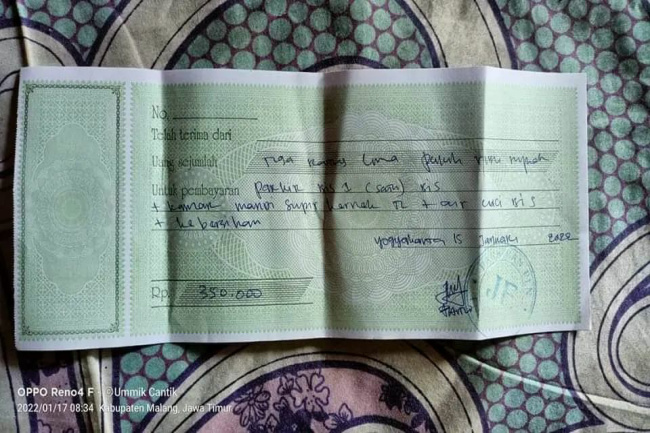 No.
Telah terima dari
Uang sejumlah Tiga Ratus Lima puluh ribu rupiah
Untuk pembayaran Parkir Bis 1 (satu) Bis
+ kamar mandi supir kernek TL + air cuci Bis
+ kebersihan
Yogyakarta 15 Januari 2022
Rp. 350.000
JF
OPPO Reno4 F ©Ummik Cantik
2022/01/17 08:34 Kabupaten Malang, Jawa Timur